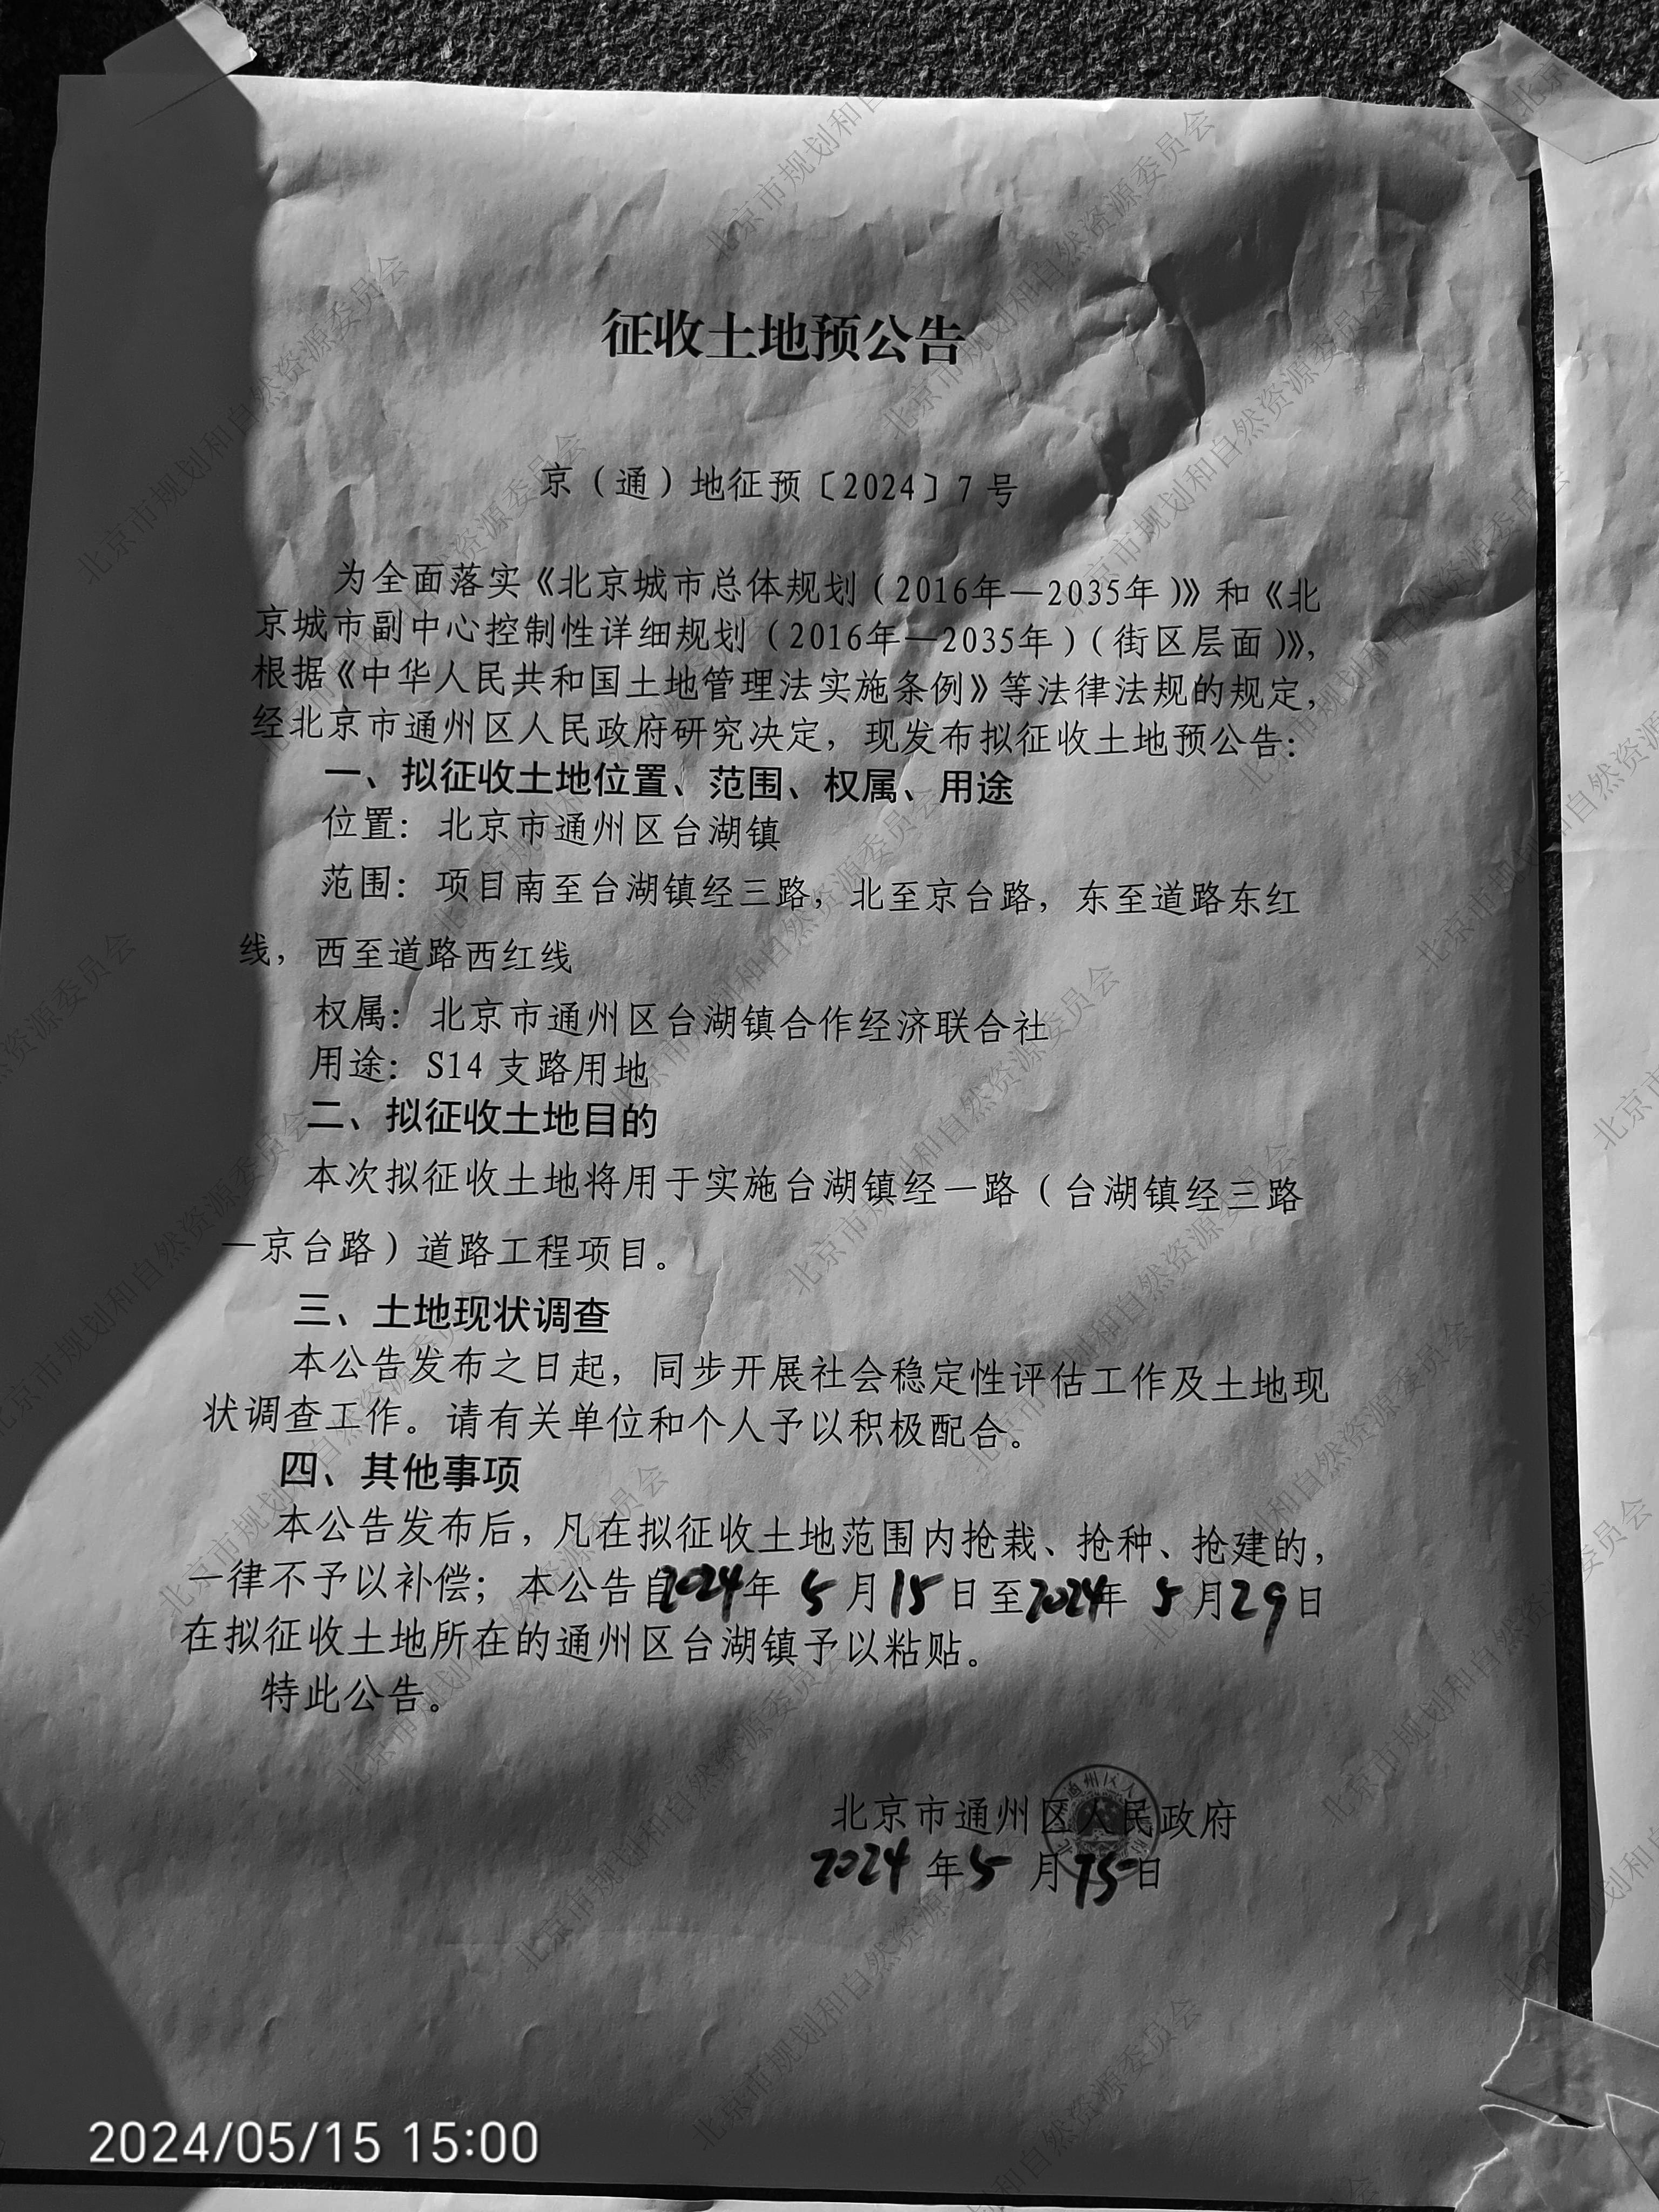 征收土地预公告
京（通）地征预〔2024〕7号
为全面落实《北京城市总体规划（2016年—2035年）》和《北
京城市副中心控制性详细规划（2016年—2035年）（街区层面）》，
根据《中华人民共和国土地管理法实施条例》等法律法规的规定，
经北京市通州区人民政府研究决定，现发布拟征收土地预公告：
一、拟征收土地位置、范围、权属、用途
位置：北京市通州区台湖镇
范围：项目南至台湖镇经三路，北至京台路，东至道路东红
线，西至道路西红线
权属：北京市通州区台湖镇合作经济联合社
用途：S14 支路用地
二、拟征收土地目的
本次拟征收土地将用于实施台湖镇经一路（台湖镇经三路
—京台路）道路工程项目。
三、土地现状调查
本公告发布之日起，同步开展社会稳定性评估工作及土地现
状调查工作。请有关单位和个人予以积极配合。
四、其他事项
本公告发布后，凡在拟征收土地范围内抢栽、抢种、抢建的，
一律不予以补偿；本公告自2024年 5 月15日至2024年 5 月29日
在拟征收土地所在的通州区台湖镇予以粘贴。
特此公告。
北京市通州区人民政府
2024 年5 月15日
2024/05/15 15:00
北京市规划和自然资源委员会